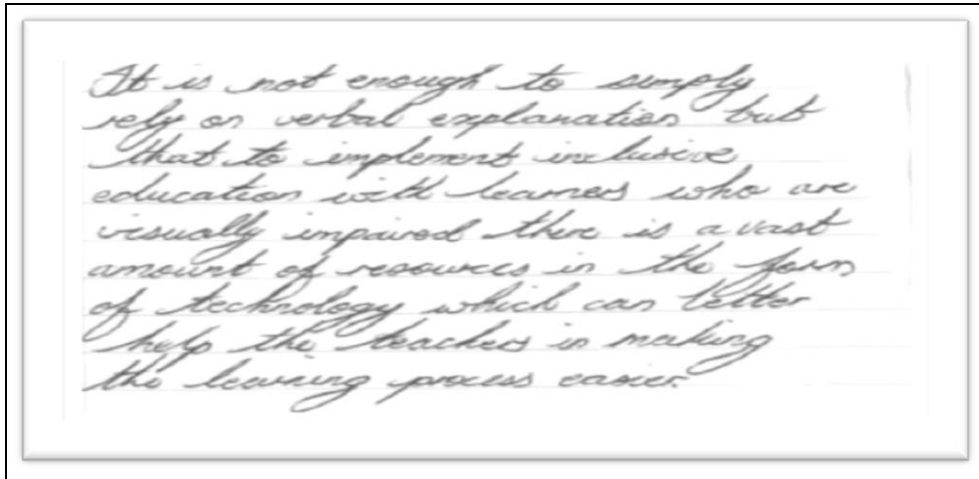 It is not enough to simply
rely on verbal explanation but
that to implement inclusive
education with learners who are
visually impaired there is a vast
amount of resources in the form
of technology which can better
help the teachers in making
the learning process easier.